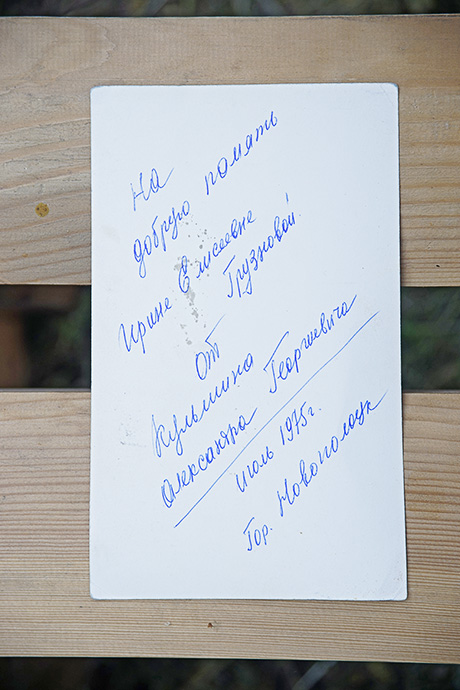 На
добрую память
Ирине Елисеевне
Грузновой.
от
Кульшина
Александра Георгиевича
июль 1975г.
Гор. Новополоцк